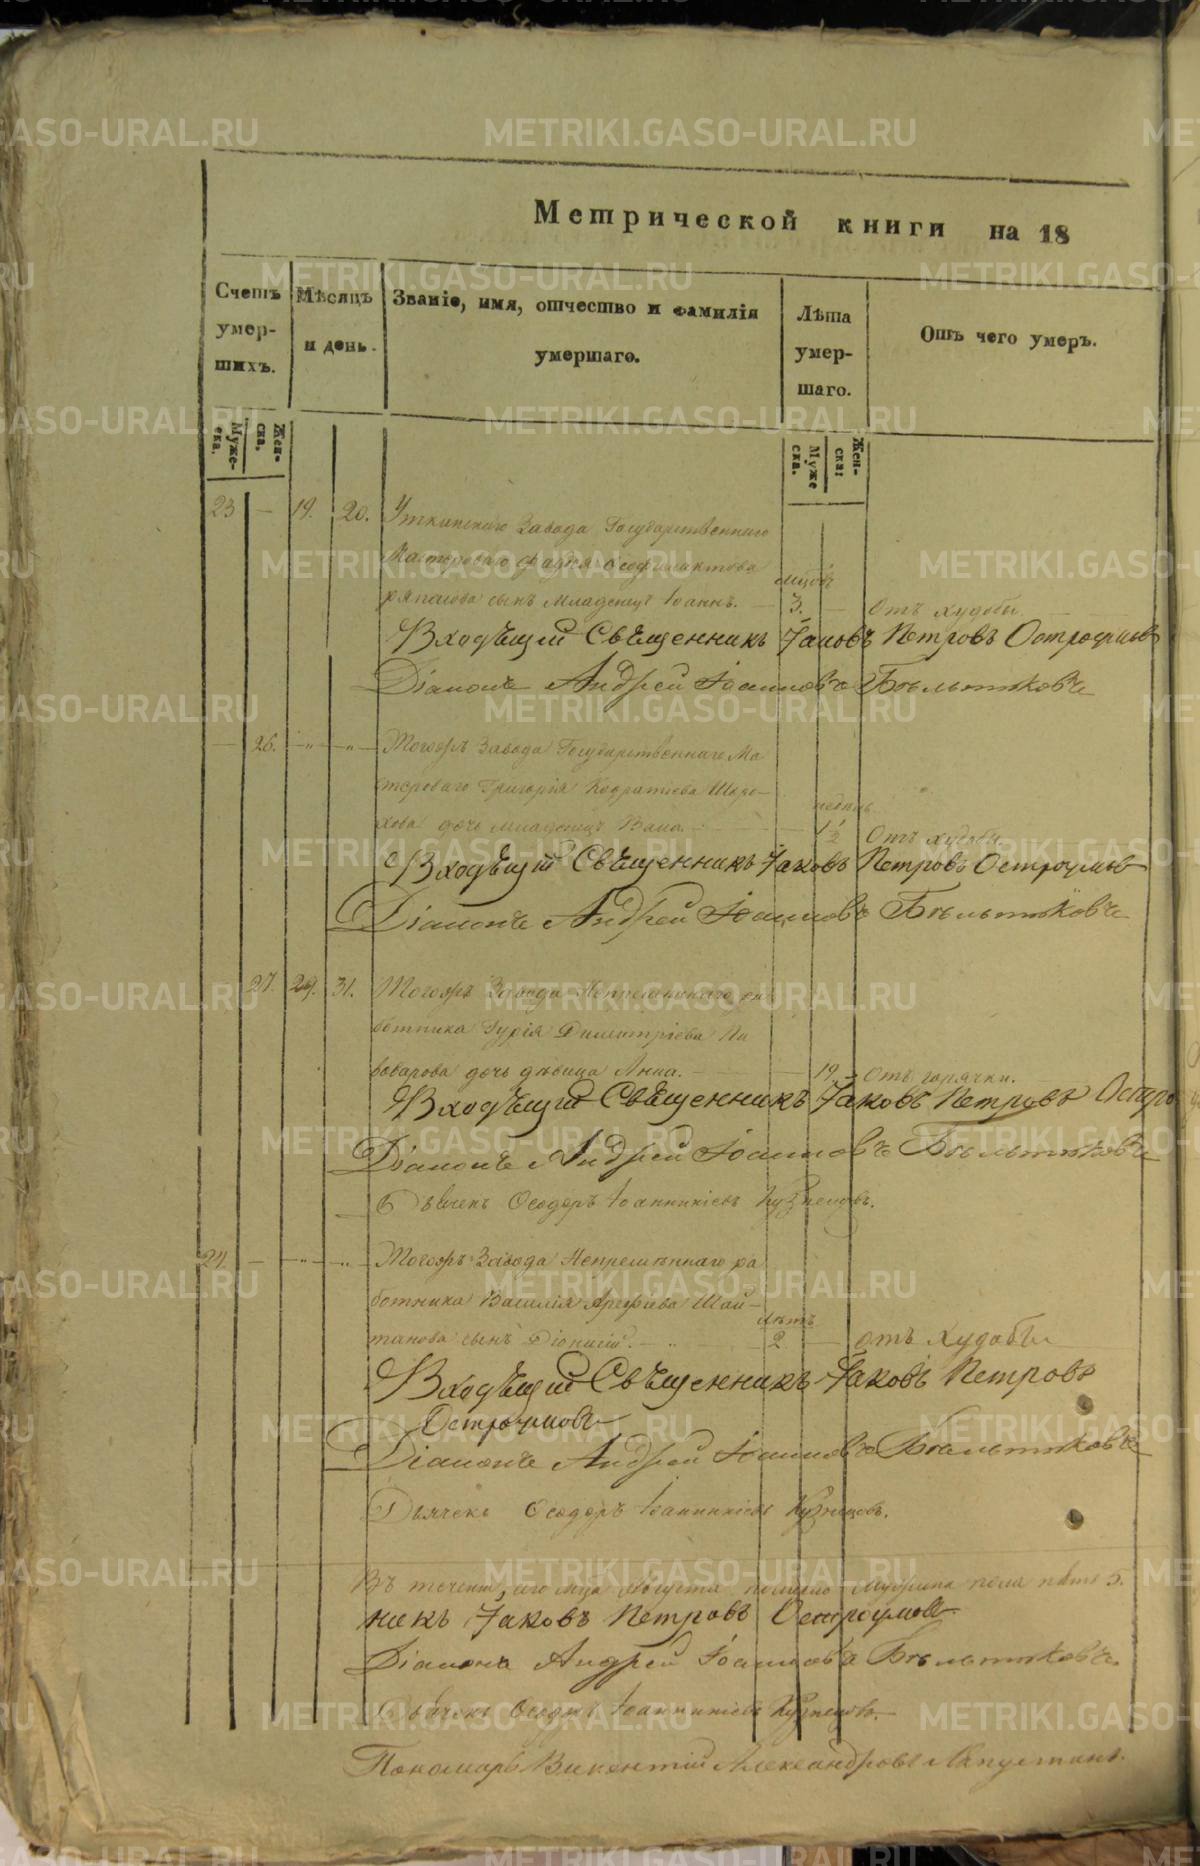 Метрической книги на 18
Счетъ умер- шихъ.
Мѣсяцъ и день.
Званіе, имя, отчество и фамилія умершаго.
Лѣта умер- шаго.
Отъ чего умеръ.
Муже- ска.
Жен- ска.
Муже ска.
Жен- ска:
23 — 19. 20. Уткинскаго Завода Государственнаго
Мастероваго Фадея Ѳеофилактова
сынъ Младенецъ Іоаннъ. — 3. — Отъ худобы.
Входѣщій Свѣщенникъ Іаковъ Петровъ Остроумовъ
Діаконъ Андрей Іоанновъ Бѣльтюковъ
— 26. —"— —"— Тогожъ Завода Государственнаго Ма
стероваго Григорія Кодратіева Шоро-
хова дочь младенецъ — 1½ Отъ худобы.
Входѣщій Свѣщенникъ Іаковъ Петровъ Остроумовъ
Діаконъ Андрей Іоанновъ Бѣльтюковъ
— 27. 29. 31. Тогожъ Завода Непремѣннаго ра
ботника Гурія Димитріева Пи
воварова дочь дѣвица Анна. — 19. — Отъ горячки.
Входѣщій Свѣщенникъ Іаковъ Петровъ Остро
Діаконъ Андрей Іоанновъ Бѣльтюковъ
Дьячекъ Ѳеодоръ Іоанникіевъ Кузнецовъ.
24. — —"— —"— Тогожъ Завода Непремѣннаго ра
ботника Василія Арефіева Шай-
лѣтъ
танова сынъ Діонисій. — 2 — отъ худобы
Входѣщій Свѣщенникъ Іаковъ Петровъ
Остроумовъ
Діаконъ Андрей Іоанновъ Бѣльтюковъ
Дьячекъ Ѳеодоръ Іоанникіевъ Кузнецовъ.
Въ теченіи сего мца Августа померло мужеска пола пять 5.
никъ Іаковъ Петровъ Остроумовъ
Діаконъ Андрей Іоанновъ Бѣльтюковъ.
Дьячекъ Ѳеодоръ Іоанникіевъ Кузнецовъ.
Пономарь Викентій Александровъ Капустинъ.
METRIKI.GASO-URAL.RU